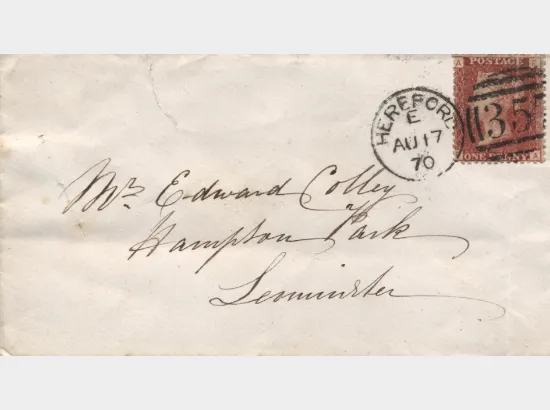 A POSTAGE E
HEREFORD
E
AU 17
70
35
ONE PENNY A
Mrs Edward Colley
Hampton Park
Leominster